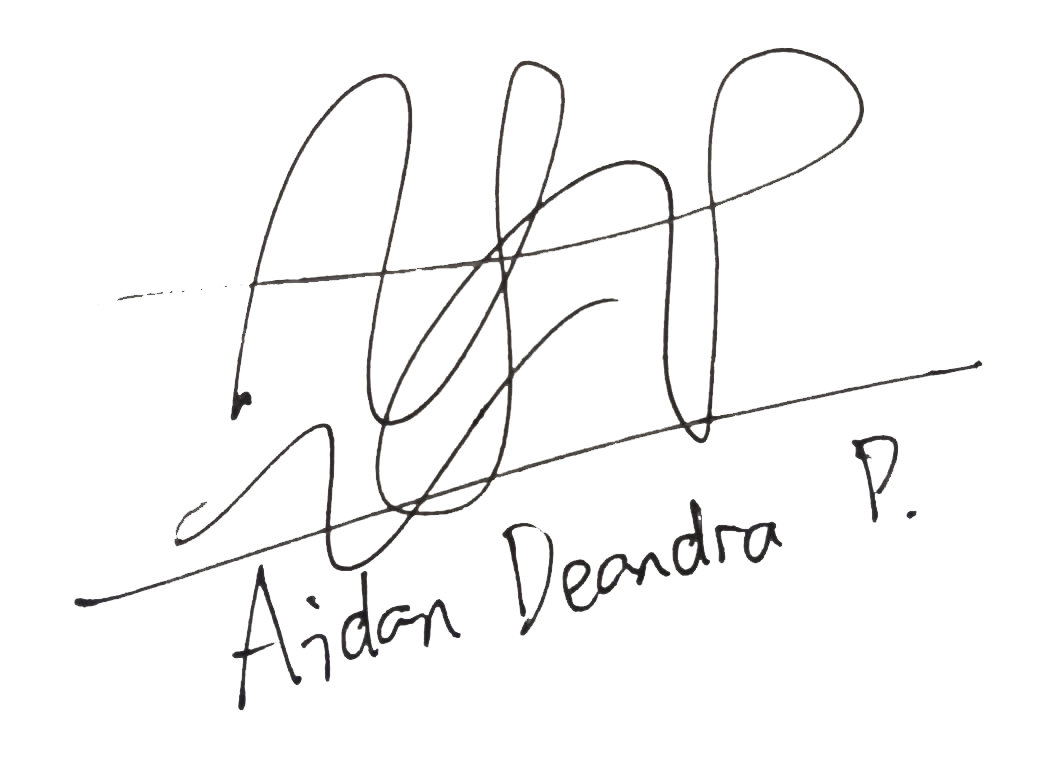 Aidan Deandra P.